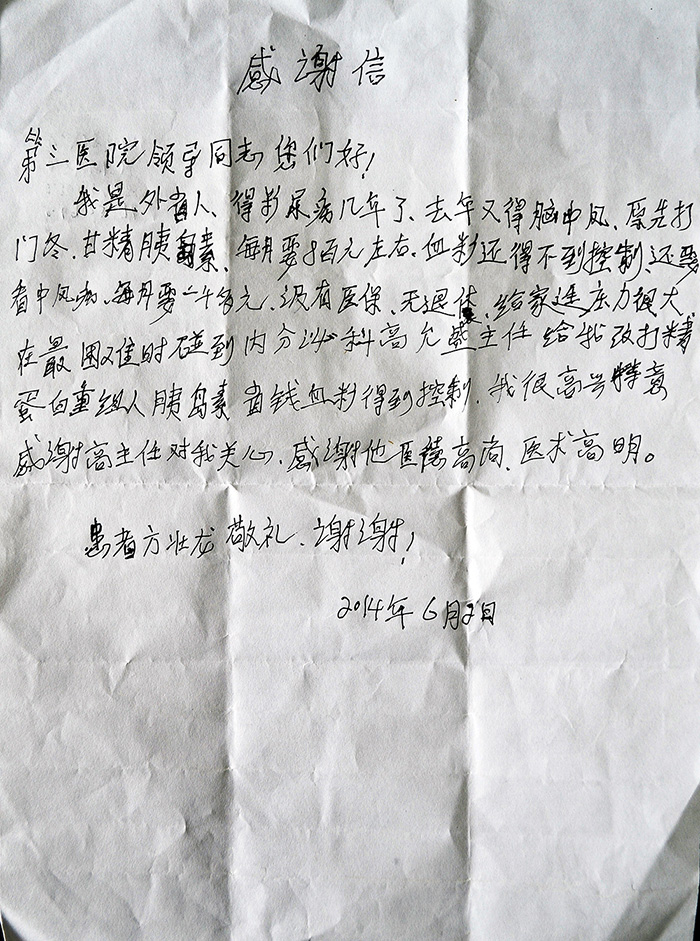 感谢信
第三医院领导同志您们好！
我是外省人、得糖尿病几年了、去年又得脑中风、原先打
门冬、甘精胰岛素、每月要8百元左右、血糖还得不到控制、还要
看中风病、每月要一千多元、没有医保、无退休、给家造压力很大、
在最困难时碰到内分泌科高允盛主任给我改打精
蛋白重组人胰岛素省钱血糖得到控制、我很高兴特意
感谢高主任对我关心、感谢他医德高尚、医术高明。
患者方壮龙敬礼、谢谢！
2014年6月2日